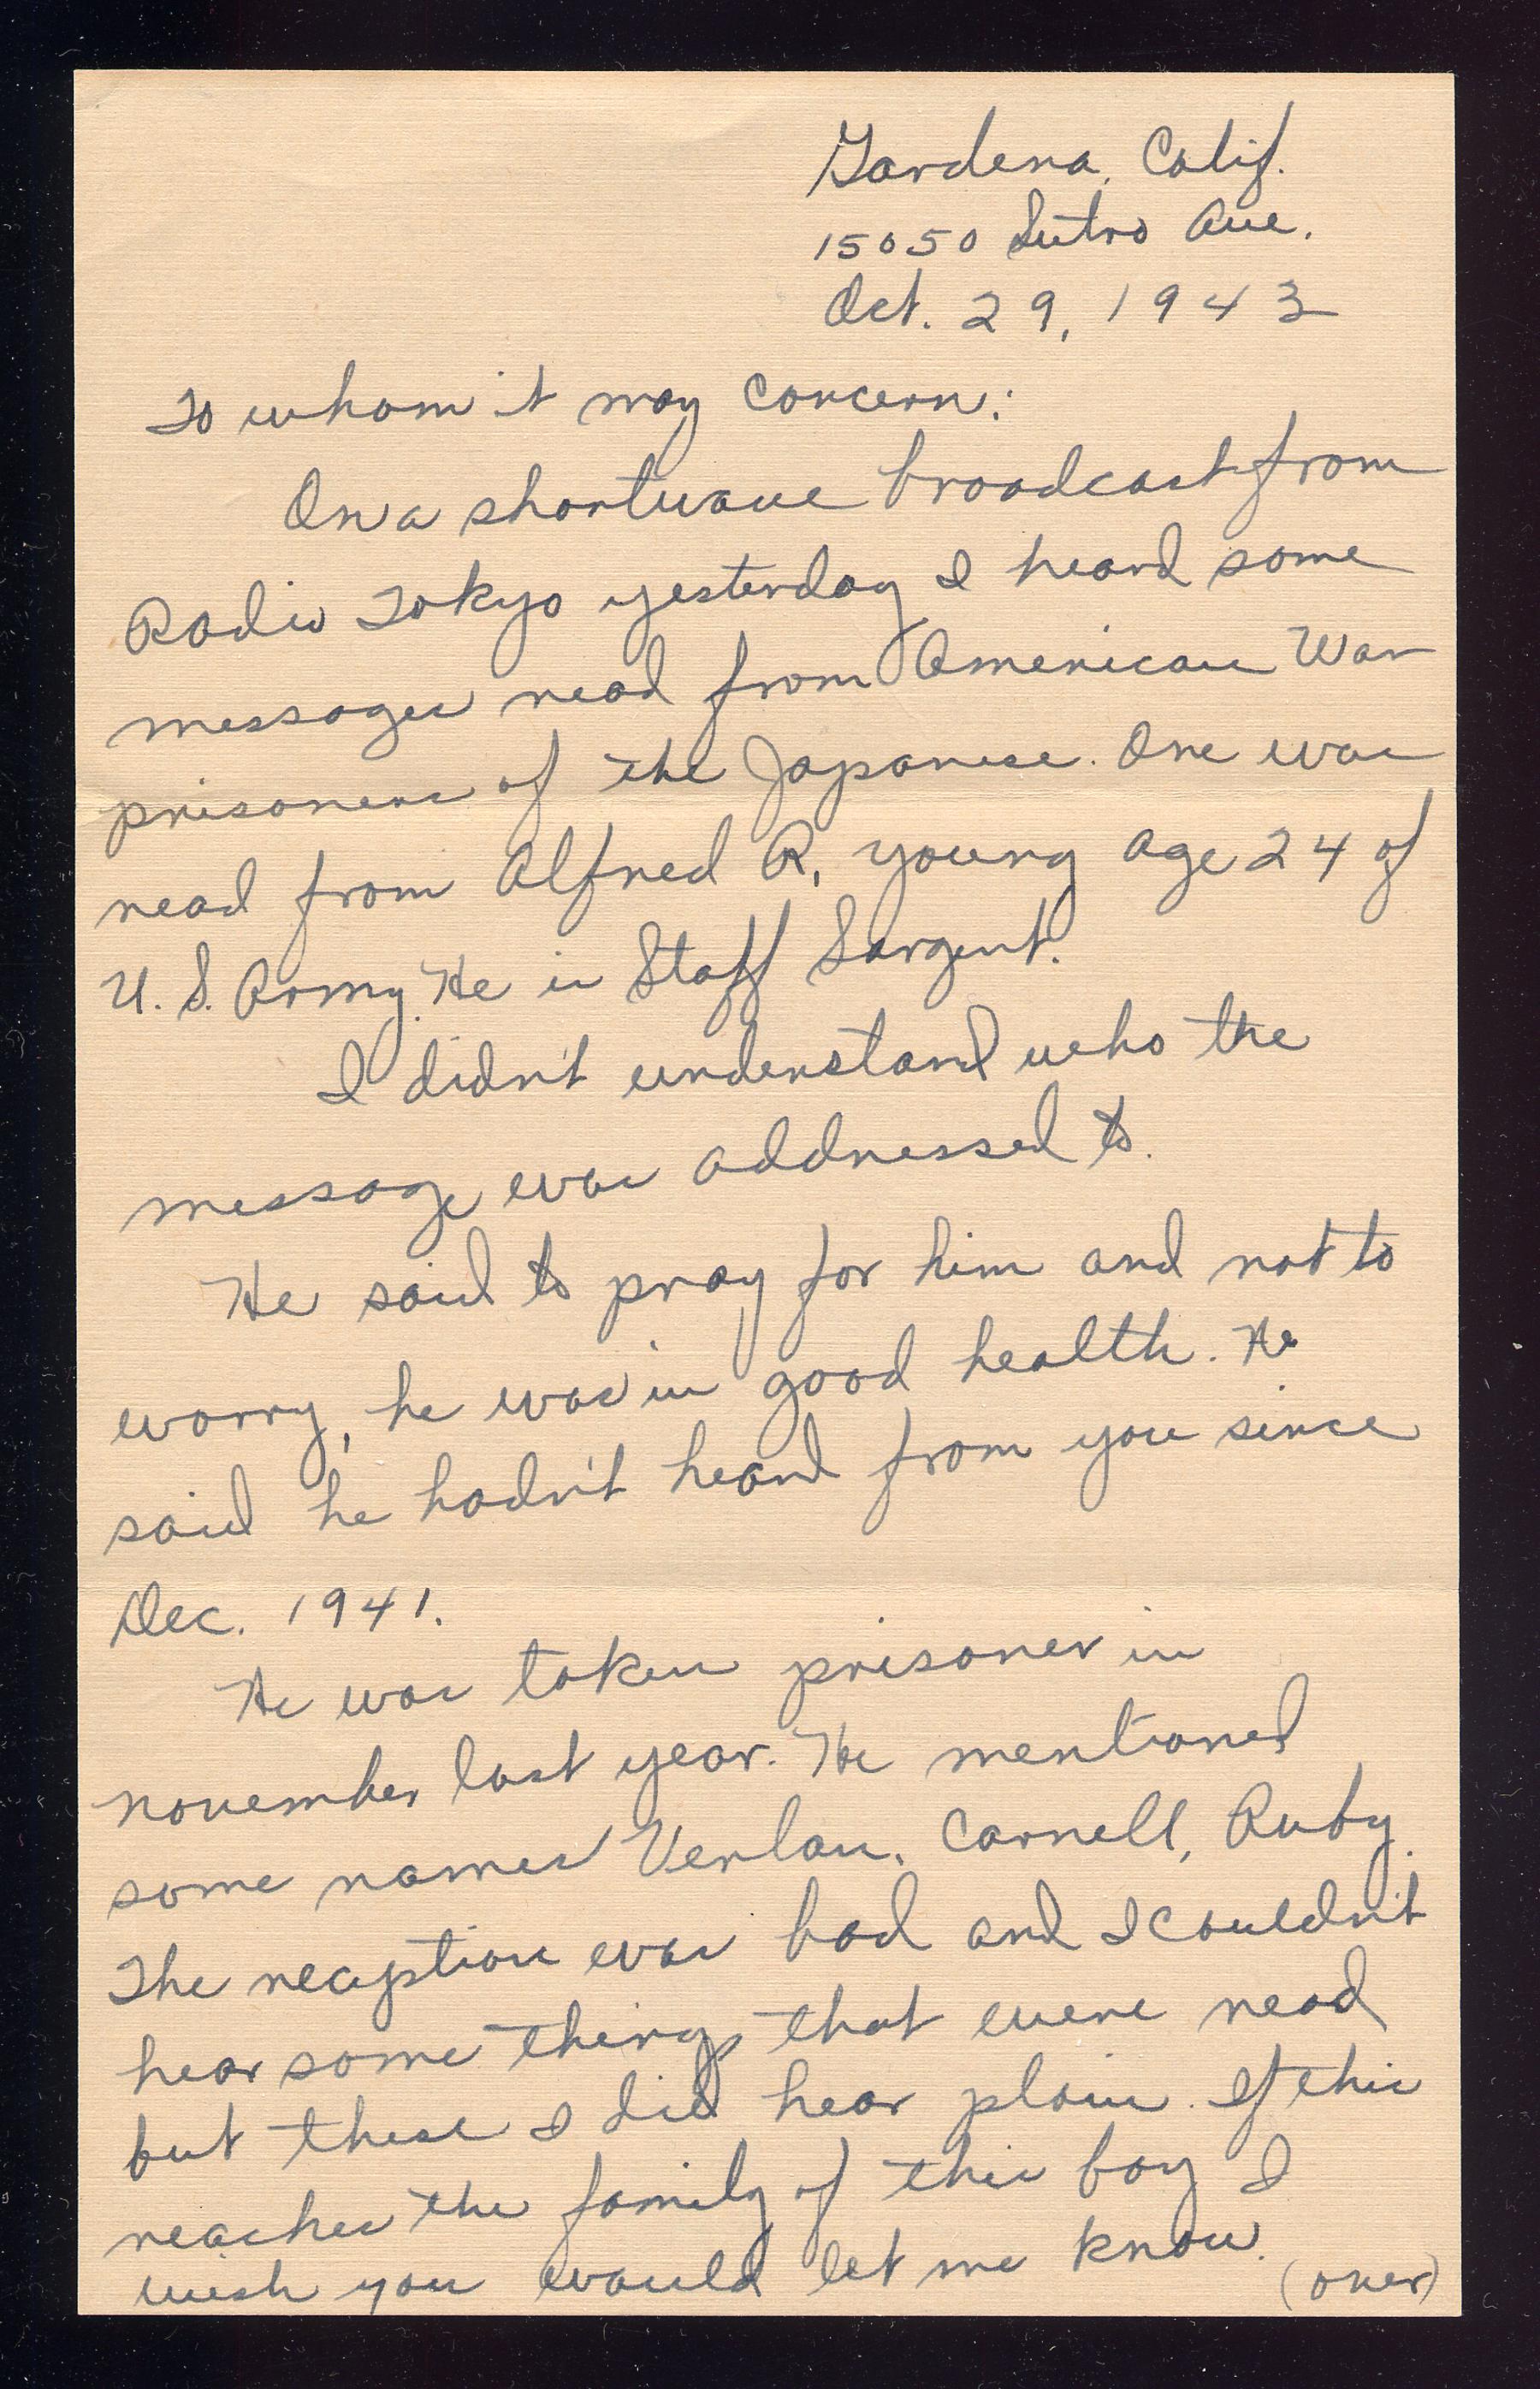 Gardena, Calif.
15050 Sutro Ave.
Oct. 29, 1943
To whom it may concern:
On a shortwave broadcast from
Radio Tokyo yesterday I heard some
messages read from American War
prisoners of the Japanese. One was
read from Alfred R. Young age 24 of
U. S. Army. He is Staff Sargent.
I didn't understand who the
message was addressed to.
He said to pray for him and not to
worry, he was in good health. He
said he hadn't heard from you since
Dec. 1941.
He was taken prisoner in
November last year. He mentioned
some names Verlan, Carnell, Ruby.
The reception was bad and I couldn't
hear some things that were read
but these I did hear plain. If this
reaches the family of this boy I
wish you would let me know.
(over)